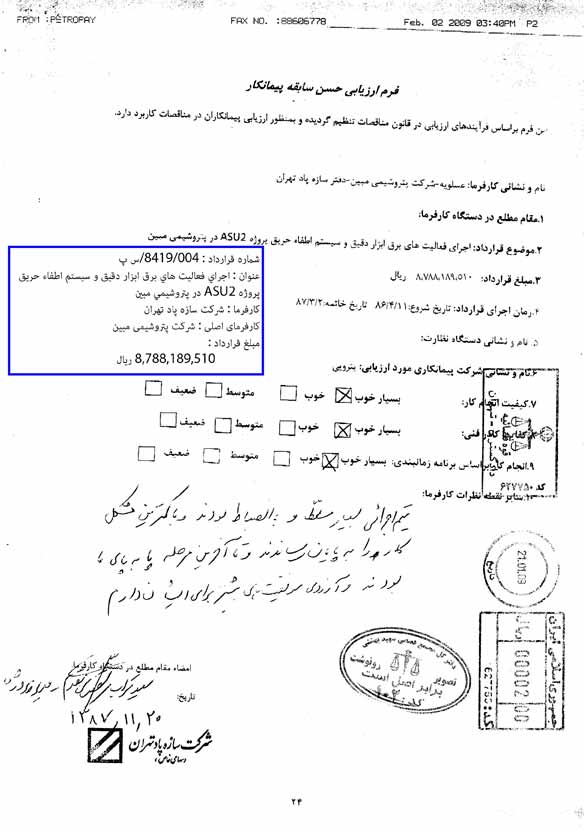 FROM :PETROPAY FAX NO. :88606778 Feb. 02 2009 03:40PM P2
فرم ارزیابی حسن سابقه پیمانکار
فرم براساس فرآیندهای ارزیابی در قانون مناقصات تنظیم گردیده و بمنظور ارزیابی پیمانکاران در مناقصات کاربرد دارد.
نام و نشانی کارفرما: عسلویه-شرکت پتروشیمی مبین-دفتر سازه پاد تهران
۱.مقام مطلع در دستگاه کارفرما:
۲.موضوع قرارداد: اجرای فعالیت های برق ابزار دقیق و سیستم اطفاء حریق پروژه ASU2 در پتروشیمی مبین
شماره قرارداد : 8419/004/س پ
عنوان : اجراي فعاليت هاي برق ابزار دقيق و سيستم اطفاء حريق
پروژه ASU2 در پتروشيمي مبين
كارفرما : شركت سازه پاد تهران
كارفرماي اصلی : شركت پتروشيمی مبين
مبلغ قرارداد :
8,788,189,510 ريال
۳.مبلغ قرارداد: ۸,۷۸۸,۱۸۹,۵۱۰ ریال
۴.زمان اجرای قرارداد: تاریخ شروع:۸۶/۴/۱۱ تاریخ خاتمه:۸۷/۳/۲
۵. نام و نشانی دستگاه نظارت:
۶.نام و نشانی شرکت پیمانکاری مورد ارزیابی: بترویی
۷.کیفیت انجام کار: بسیار خوب خوب متوسط ضعیف
کادر فنی: بسیار خوب خوب متوسط ضعیف
۹.انجام کار براساس برنامه زمانبندی: بسیار خوب خوب متوسط ضعیف
کد ۶۲۷۷۵۰
۱۰.سایر نقطه نظرات کارفرما:
تیم اجرائی بسیار مسلط و با انضباط بودند و با کمترین مشکل
کار را به پایان رساندند و تا آخرین مرحله پا به پای ما
بودند و آرزوی موفقیت های بیشتر برای ایشان دارم
21.01.09
تاریخ
جمهوری اسلامی ایران
ریال
00002 00
تصویر رونوشت
برابر اصل است
کد:
امضاء مقام مطلع در دستگاه کارفرما
تاریخ:
۱۳۸۷,۱۱,۲۰
شرکت سازه پاد تهران
(سهامی خاص)
۲۴